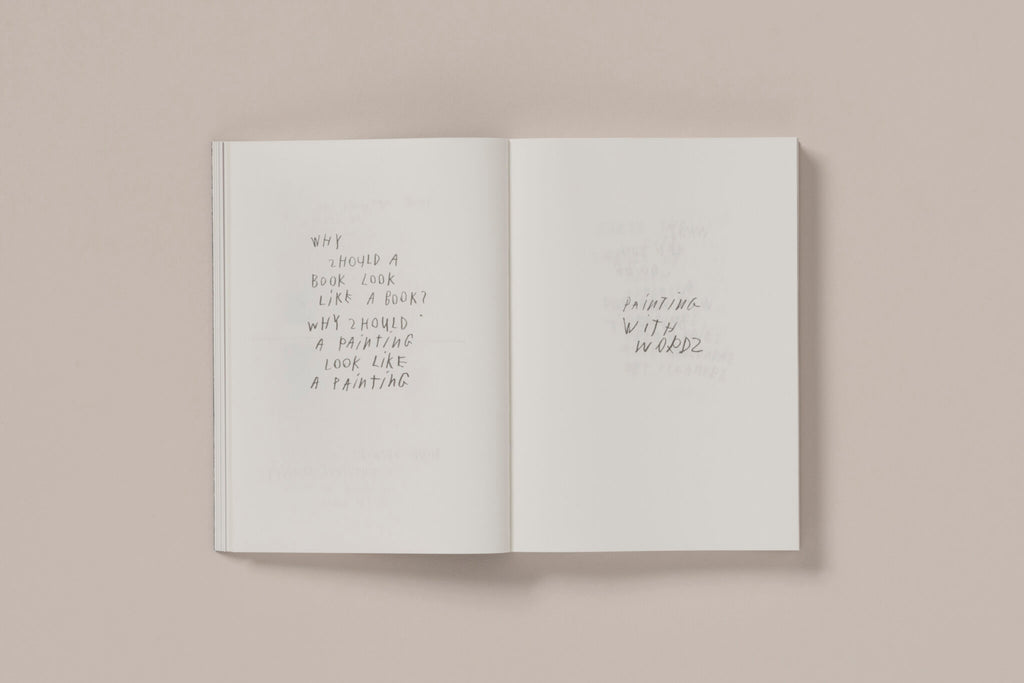 WHY
SHOULD A
BOOK LOOK
LIKE A BOOK?
WHY SHOULD
A PAINTING
LOOK LIKE
A PAINTING
PAINTING
WITH
WORDZ